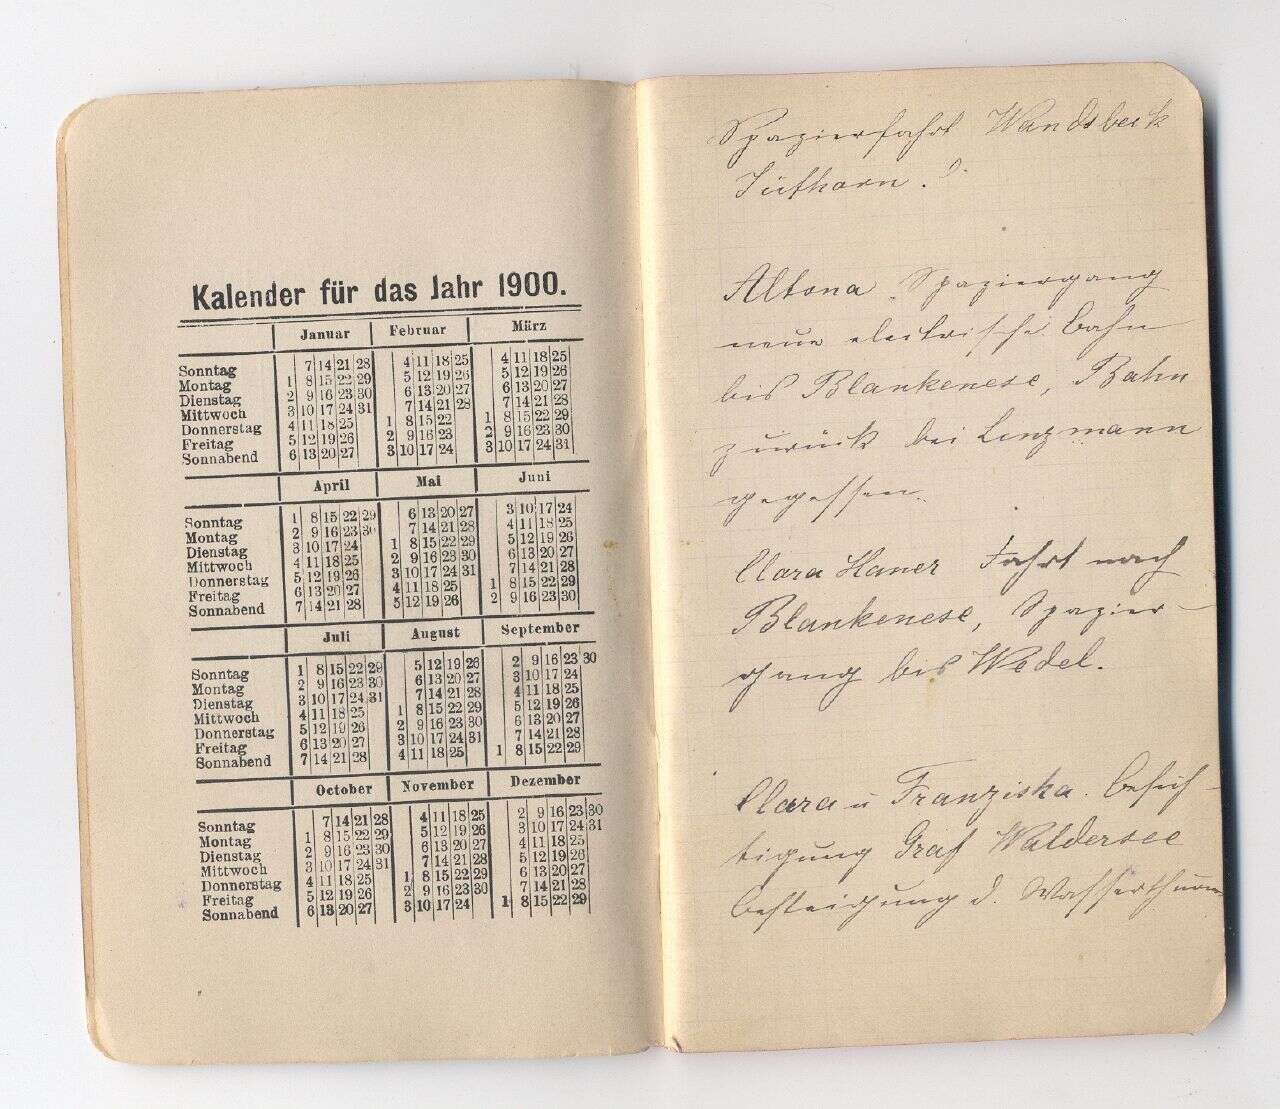 Kalender für das Jahr 1900.
Januar Februar März
Sonntag 7 14 21 28 4 11 18 25 4 11 18 25
Montag 1 8 15 22 29 5 12 19 26 5 12 19 26
Dienstag 2 9 16 23 30 6 13 20 27 6 13 20 27
Mittwoch 3 10 17 24 31 7 14 21 28 7 14 21 28
Donnerstag 4 11 18 25 1 8 15 22 1 8 15 22 29
Freitag 5 12 19 26 2 9 16 23 2 9 16 23 30
Sonnabend 6 13 20 27 3 10 17 24 3 10 17 24 31
April Mai Juni
Sonntag 1 8 15 22 29 6 13 20 27 3 10 17 24
Montag 2 9 16 23 30 7 14 21 28 4 11 18 25
Dienstag 3 10 17 24 1 8 15 22 29 5 12 19 26
Mittwoch 4 11 18 25 2 9 16 23 30 6 13 20 27
Donnerstag 5 12 19 26 3 10 17 24 31 7 14 21 28
Freitag 6 13 20 27 4 11 18 25 1 8 15 22 29
Sonnabend 7 14 21 28 5 12 19 26 2 9 16 23 30
Juli August September
Sonntag 1 8 15 22 29 5 12 19 26 2 9 16 23 30
Montag 2 9 16 23 30 6 13 20 27 3 10 17 24
Dienstag 3 10 17 24 31 7 14 21 28 4 11 18 25
Mittwoch 4 11 18 25 1 8 15 22 29 5 12 19 26
Donnerstag 5 12 19 26 2 9 16 23 30 6 13 20 27
Freitag 6 13 20 27 3 10 17 24 31 7 14 21 28
Sonnabend 7 14 21 28 4 11 18 25 1 8 15 22 29
October November Dezember
Sonntag 7 14 21 28 4 11 18 25 2 9 16 23 30
Montag 1 8 15 22 29 5 12 19 26 3 10 17 24 31
Dienstag 2 9 16 23 30 6 13 20 27 4 11 18 25
Mittwoch 3 10 17 24 31 7 14 21 28 5 12 19 26
Donnerstag 4 11 18 25 1 8 15 22 29 6 13 20 27
Freitag 5 12 19 26 2 9 16 23 30 7 14 21 28
Sonnabend 6 13 20 27 3 10 17 24 1 8 15 22 29
Spazierfahrt Wandsbeck
Altona Spaziergang
neue electrische Bahn
bis Blankenese, Bahn
zurück bei Linzmann
gegessen.
Clara Haner Fahrt nach
Blankenese, Spazier-
gang bis Wedel.
Clara u Franziska. Besich-
tigung Graf Waldersee
Besteigung d. Wasserthurm